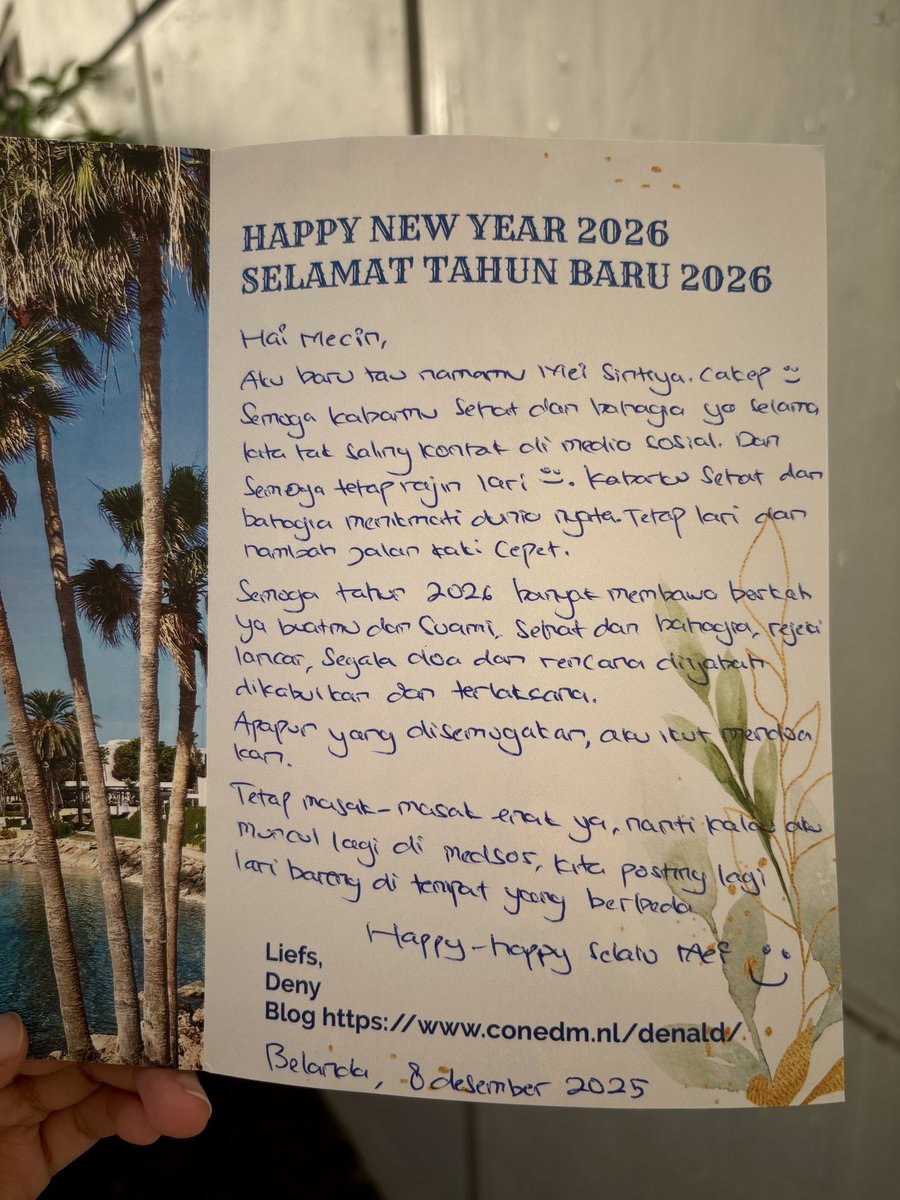 HAPPY NEW YEAR 2026
SELAMAT TAHUN BARU 2026
Hai Mecin,
Aku baru tau namamu Mei Sintya. Cakep
Semoga kabarmu sehat dan bahagia ya selama
kita tak saling kontak di media sosial. Dan
semoga tetap rajin lari. Kabarku sehat dan
bahagia menikmati dunia nyata. Tetap lari dan
nambah jalan kaki cepet.
Semoga tahun 2026 banyak membawa berkah
ya buatmu dan suami, sehat dan bahagia, rejeki
lancar, segala doa dan rencana diijabah
dikabulkan dan terlaksana.
Apapun yang disemogakan, aku ikut mendoa
kan.
Tetap masak-masak enak ya, nanti kalau aku
muncul lagi di medsos, kita posting lagi
lari bareng di tempat yang berbeda
Happy-happy selalu Mei
Liefs,
Deny
Blog https://www.conedm.nl/denald/
Belanda, 8 desember 2025